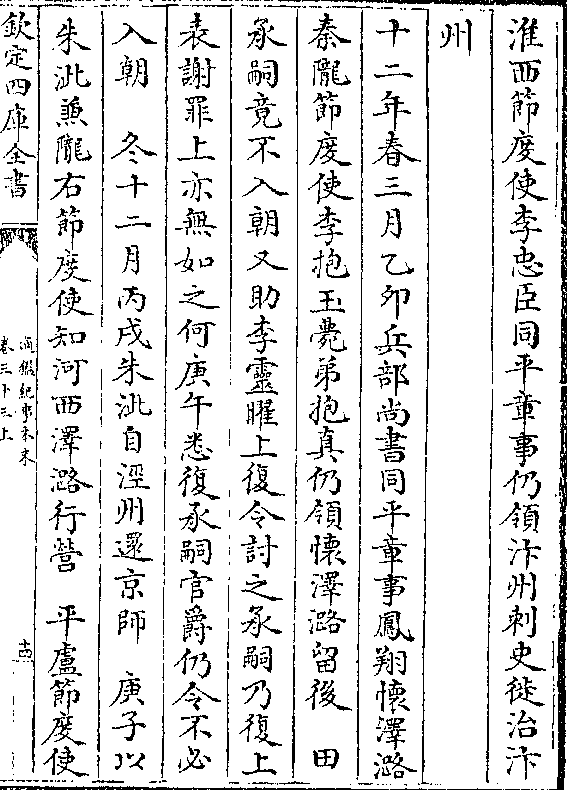 淮西節度使李忠臣同平章事仍領汴州刺史徙治汴
州
十二年春三月乙卯兵部尚書同平章事鳳翔懷澤潞
秦隴節度使李抱玉薨弟抱真仍領懷澤潞留後　田
承嗣竟不入朝又助李靈曜上復令討之承嗣乃復上
表謝罪上亦無如之何庚午悉復承嗣官爵仍令不必
入朝　冬十二月丙戌朱泚自涇州還京師　庚子以
朱泚兼隴右節度使知河西澤潞行營　平盧節度使
欽定四庫全書
通鑑紀事本末
卷三十三上
十四